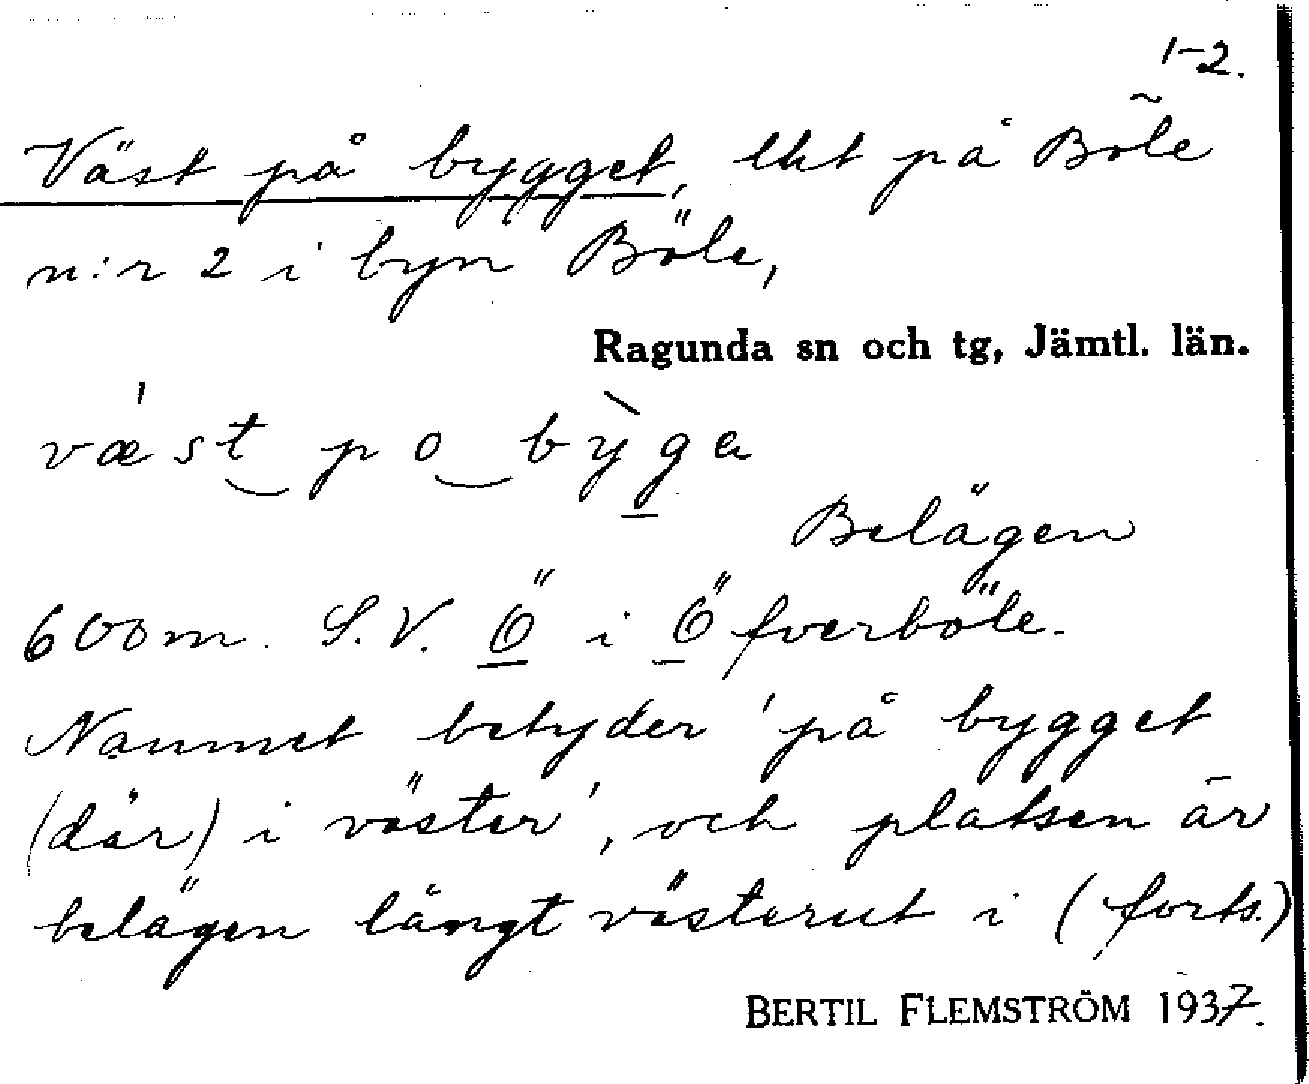 1-2.
Väst på bygget, lht på Böle
n:r 2 i byn Böle,
Ragunda sn och tg, Jämtl. län.
væ´st po bỳga
Belägen
600 m. S.V. Ö i Öfverböle.
Namnet betyder 'på bygget
(där) i väster', och platsen är
belägen långt västerut i (forts.)
BERTIL FLEMSTRÖM 1937.